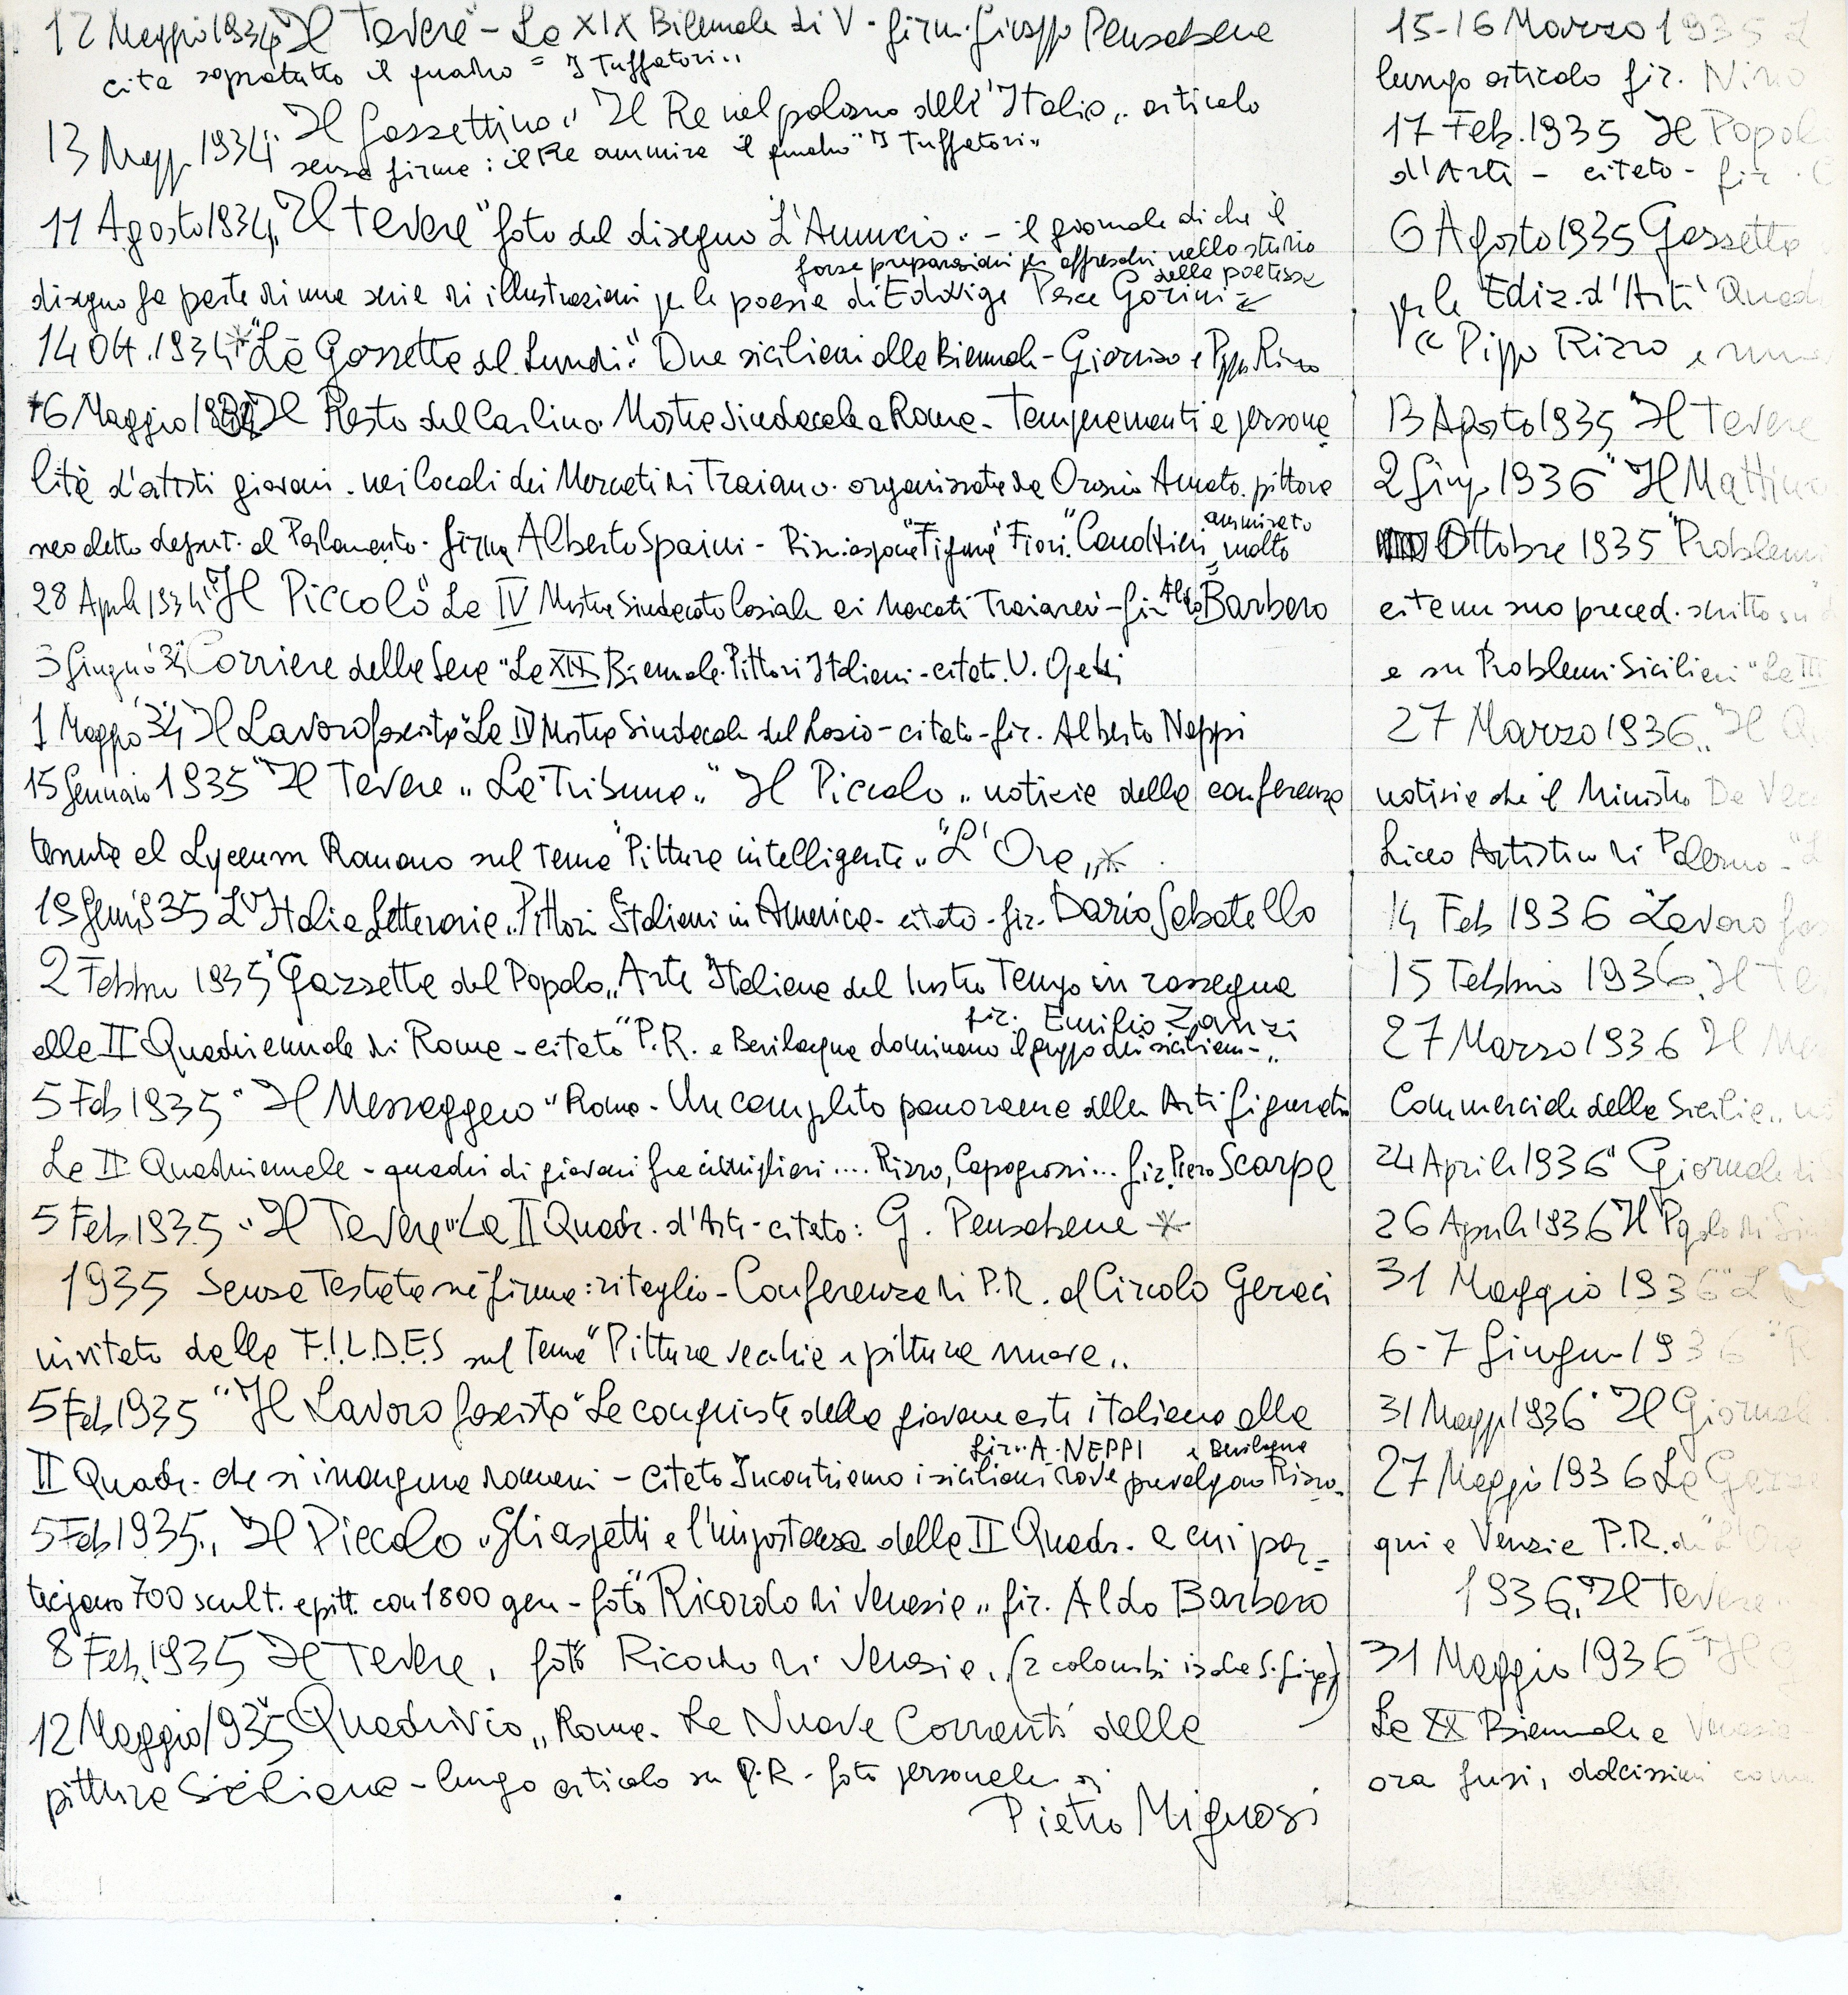 12 Maggio 1934 "Il Tevere" - La XIX Biennale di V - firm. Giuseppe Pensabene
cita sopratutto il quadro "I Tuffatori"
13 Magg. 1934 "Il Gazzettino" Il Re nel palazzo dell'Italia" articolo
senza firma: il Re ammira il quadro "I Tuffatori"
11 Agosto 1934 "Il Tevere" foto del disegno L'Annuncio - il giornale dice che il
forse preparazioni per affreschi nello studio
della poetessa
disegno fa parte di una serie di illustrazioni per le poesie di Edvige Pesce Gorini
14 Ott. 1934 * "La Gazzetta del Lunedì" Due siciliani alla Biennale - Giarrizzo e Pippo Rizzo
16 Maggio 1934 Il Resto del Carlino. Mostra Sindacale a Roma - Temperamenti e persona=
lità d'artisti giovani. nei locali dei Mercati di Traiano. organizzata da Orazio Amato. pittore
ammirato
neo eletto deput. al Parlamento - firma Alberto Spaini - "Figure" "Fiori" "Canottieri" molto
28 Aprile 1934 "Il Piccolo" La IV Mostra Sindacato Laziale ai Mercati Traianei - fir Aldo Barbero
3 Giugno '34 Corriere della Sera "La XIX Biennale. Pittori Italiani - citato. U. Ojetti
1 Maggio '34 Il Lavoro fascista "La IV Mostra Sindacale del Lazio - citato - fir. Alberto Neppi
15 Gennaio 1935 "Il Tevere" "La Tribuna" Il Piccolo" notizie della conferenza
tenuta al Lyceum Romano sul tema "Pittura intelligente" "L'Ora" *
19 Genn. 935 L'Italia Letteraria "Pittori Italiani in America - citato - fir. Dario Sabatello
2 Febbraio 1935 "Gazzetta del Popolo" Arte Italiana del nostro Tempo in rassegna
fir. Emilio Zanzi
alla II Quadriennale di Roma - citato "P.R. e Bevilacqua dominano il gruppo dei siciliani -"
5 Feb 1935 "Il Messaggero" Roma - Un completo panorama delle Arti figurative
La II Quadriennale - quadri di giovani fra i migliori .... Rizzo, Capogrossi... fir. Piero Scarpa
5 Feb. 1935 "Il Tevere" La II Quadr. d'Arte - citato: G. Pensabene *
1935 Senza Testata né firma: ritaglio - Conferenza di P.R. al Circolo Geraci
invitato dalla F.I.L.D.E.S sul Tema "Pittura vecchia e pittura nuova"
5 Feb 1935 "Il Lavoro fascista" Le conquiste della giovane arte italiana alla
fir. A. NEPPI e Bevilacqua
II Quadr. che si inaugura domani - citato Incontriamo i siciliani dove prevalgono Rizzo
5 Feb 1935 "Il Piccolo "Gli aspetti e l'importanza della II Quadr. a cui par=
tecipano 700 scult. e pitt. con 1800 op - foto "Ricordo di Venezia" fir. Aldo Barbero
8 Feb. 1935 Il Tevere, foto Ricordo di Venezia. (2 colombi
12 Maggio 1935 "Quadrivio" Roma - Le Nuove Correnti della
pittura Siciliana - lungo articolo su P.R. - foto personale di
Pietro Mignosi
15-16 Marzo 1935
lungo articolo fir. Nino
17 Feb. 1935 Il Popolo
d'Arte - citato - fir.
6 Agosto 1935 Gazzetta
per le Ediz. d'Arte Quad
"Pippo Rizzo e
13 Agosto 1935 "Il Tevere
2 Giug. 1936 "Il Mattino
Ottobre 1935 "Problemi
cita un suo preced. scritto su
e su Problemi Siciliani "La III
27 Marzo 1936 "Il
notizia che il Ministro De Vecc
Liceo Artistico di Palermo -
14 Feb 1936 "Lavoro fas
15 Febbraio 1936, Il Te
27 Marzo 1936 Il
Commerciale della Sicilia"
24 Aprile 1936 "Giornale di
26 Aprile 1936 Il Popolo di Si
31 Maggio 1936 "L
6-7 Giugno 1936
31 Magg. 1936 "Il Giornale
27 Maggio 1936 La Gazze
qui a Venezia P.R. "L'Ora
1936 "Il Tevere
31 Maggio 1936 "Il
La XX Biennale a Venezia
ora fusi, dolcissimi come